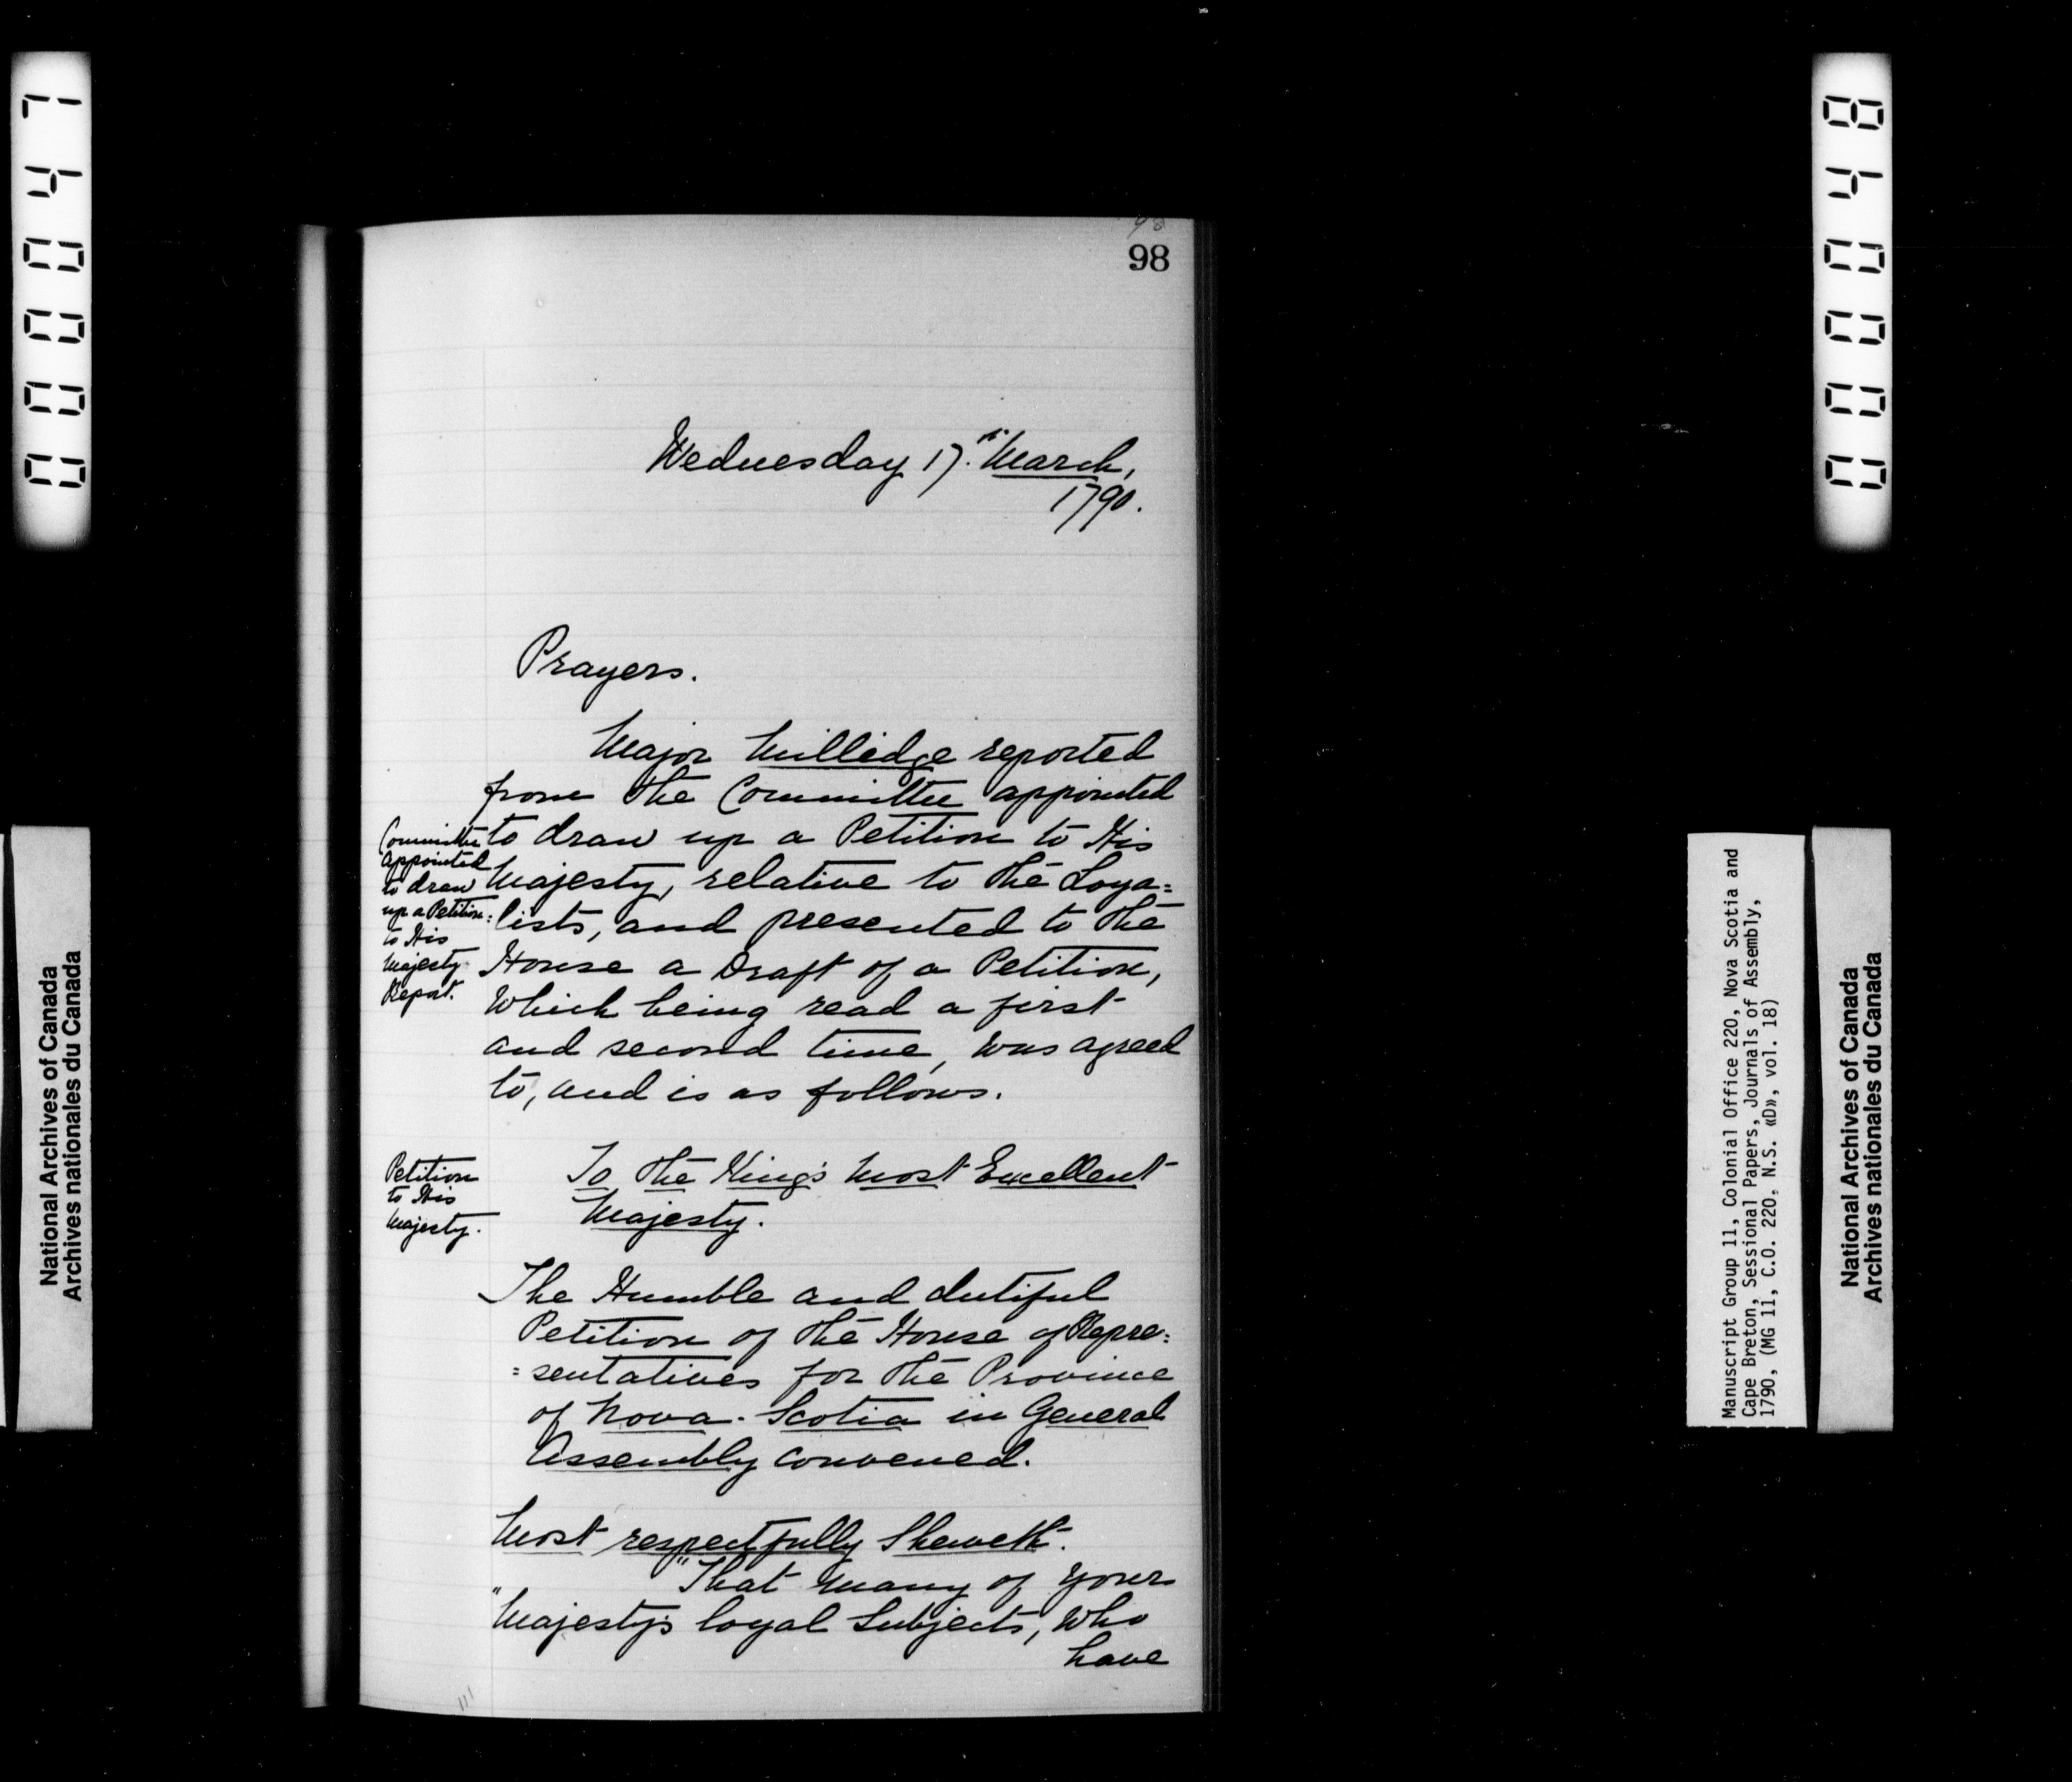 000047
98
98
Wednesday 17.th March,
1790.
Prayers.
Major Milledge reported
from the Committee appointed
to draw up a Petition to His
Majesty, relative to the Loya=
=lists, and presented to the
House a Draft of a Petition,
Which being read a first
and second time, was agreed
to, and is as follows.
Committee
appointed
to draw
up a Petition
to His
Majesty
Report.
Petition
to His
Majesty.
To the King's Most Excellent
Majesty.
The Humble and dutiful
Petition of the House of Repre=
=sentatives for the Province
of Nova-Scotia in General
Assembly convened.
Most respectfully Sheweth.
"That many of Your
"Majesty's loyal Subjects, Who
have
National Archives of Canada
Archives nationales du Canada
000048
Manuscript Group 11, Colonial Office 220, Nova Scotia and
Cape Breton, Sessional Papers, Journals of Assembly,
1790, (MG 11, C.O. 220, N.S. «D», vol. 18)
National Archives of Canada
Archives nationales du Canada